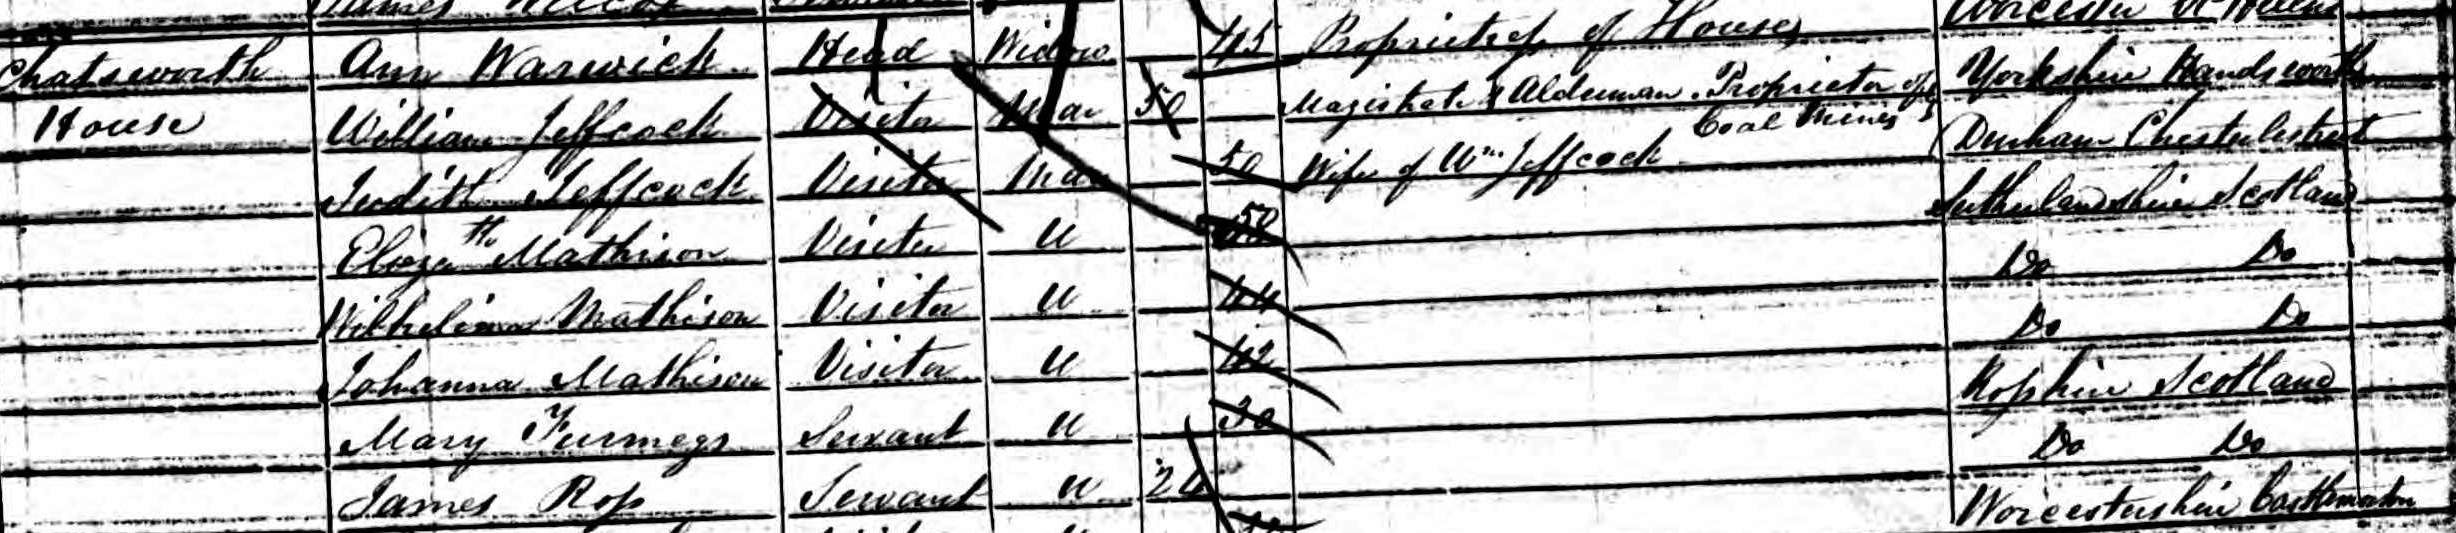 Chatsworth Ann Warwick Head Widow 45 Proprietress of Houses Worcester St Helens
House William Jeffcock Visitor Mar 50 Magistrate & Alderman. Proprietor of Coal Mines Yorkshire Handsworth
Judith Jeffcock Visitor Mar 50 Wife of Wm Jeffcock Durham Chesterlestreet
Elizath Mathison Visitor U 50 Sutherlandshire Scotland
Wilhelimina Mathison Visitor U 44 Do Do
Johanna Mathison Visitor U 42 Do Do
Mary Furmegs Servant U 30 Rosshire Scotland
James Ross Servant U 24 Do Do
Worcestershire Castlemorton